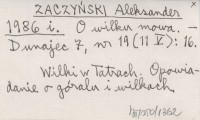 ZACZYŃSKI Aleksander
1986 i. O wilku mowa. –
Dunajec 7, nr 19 (11 V): 16.
Wilki w Tatrach. Opowia-
danie o góralu i wilkach.